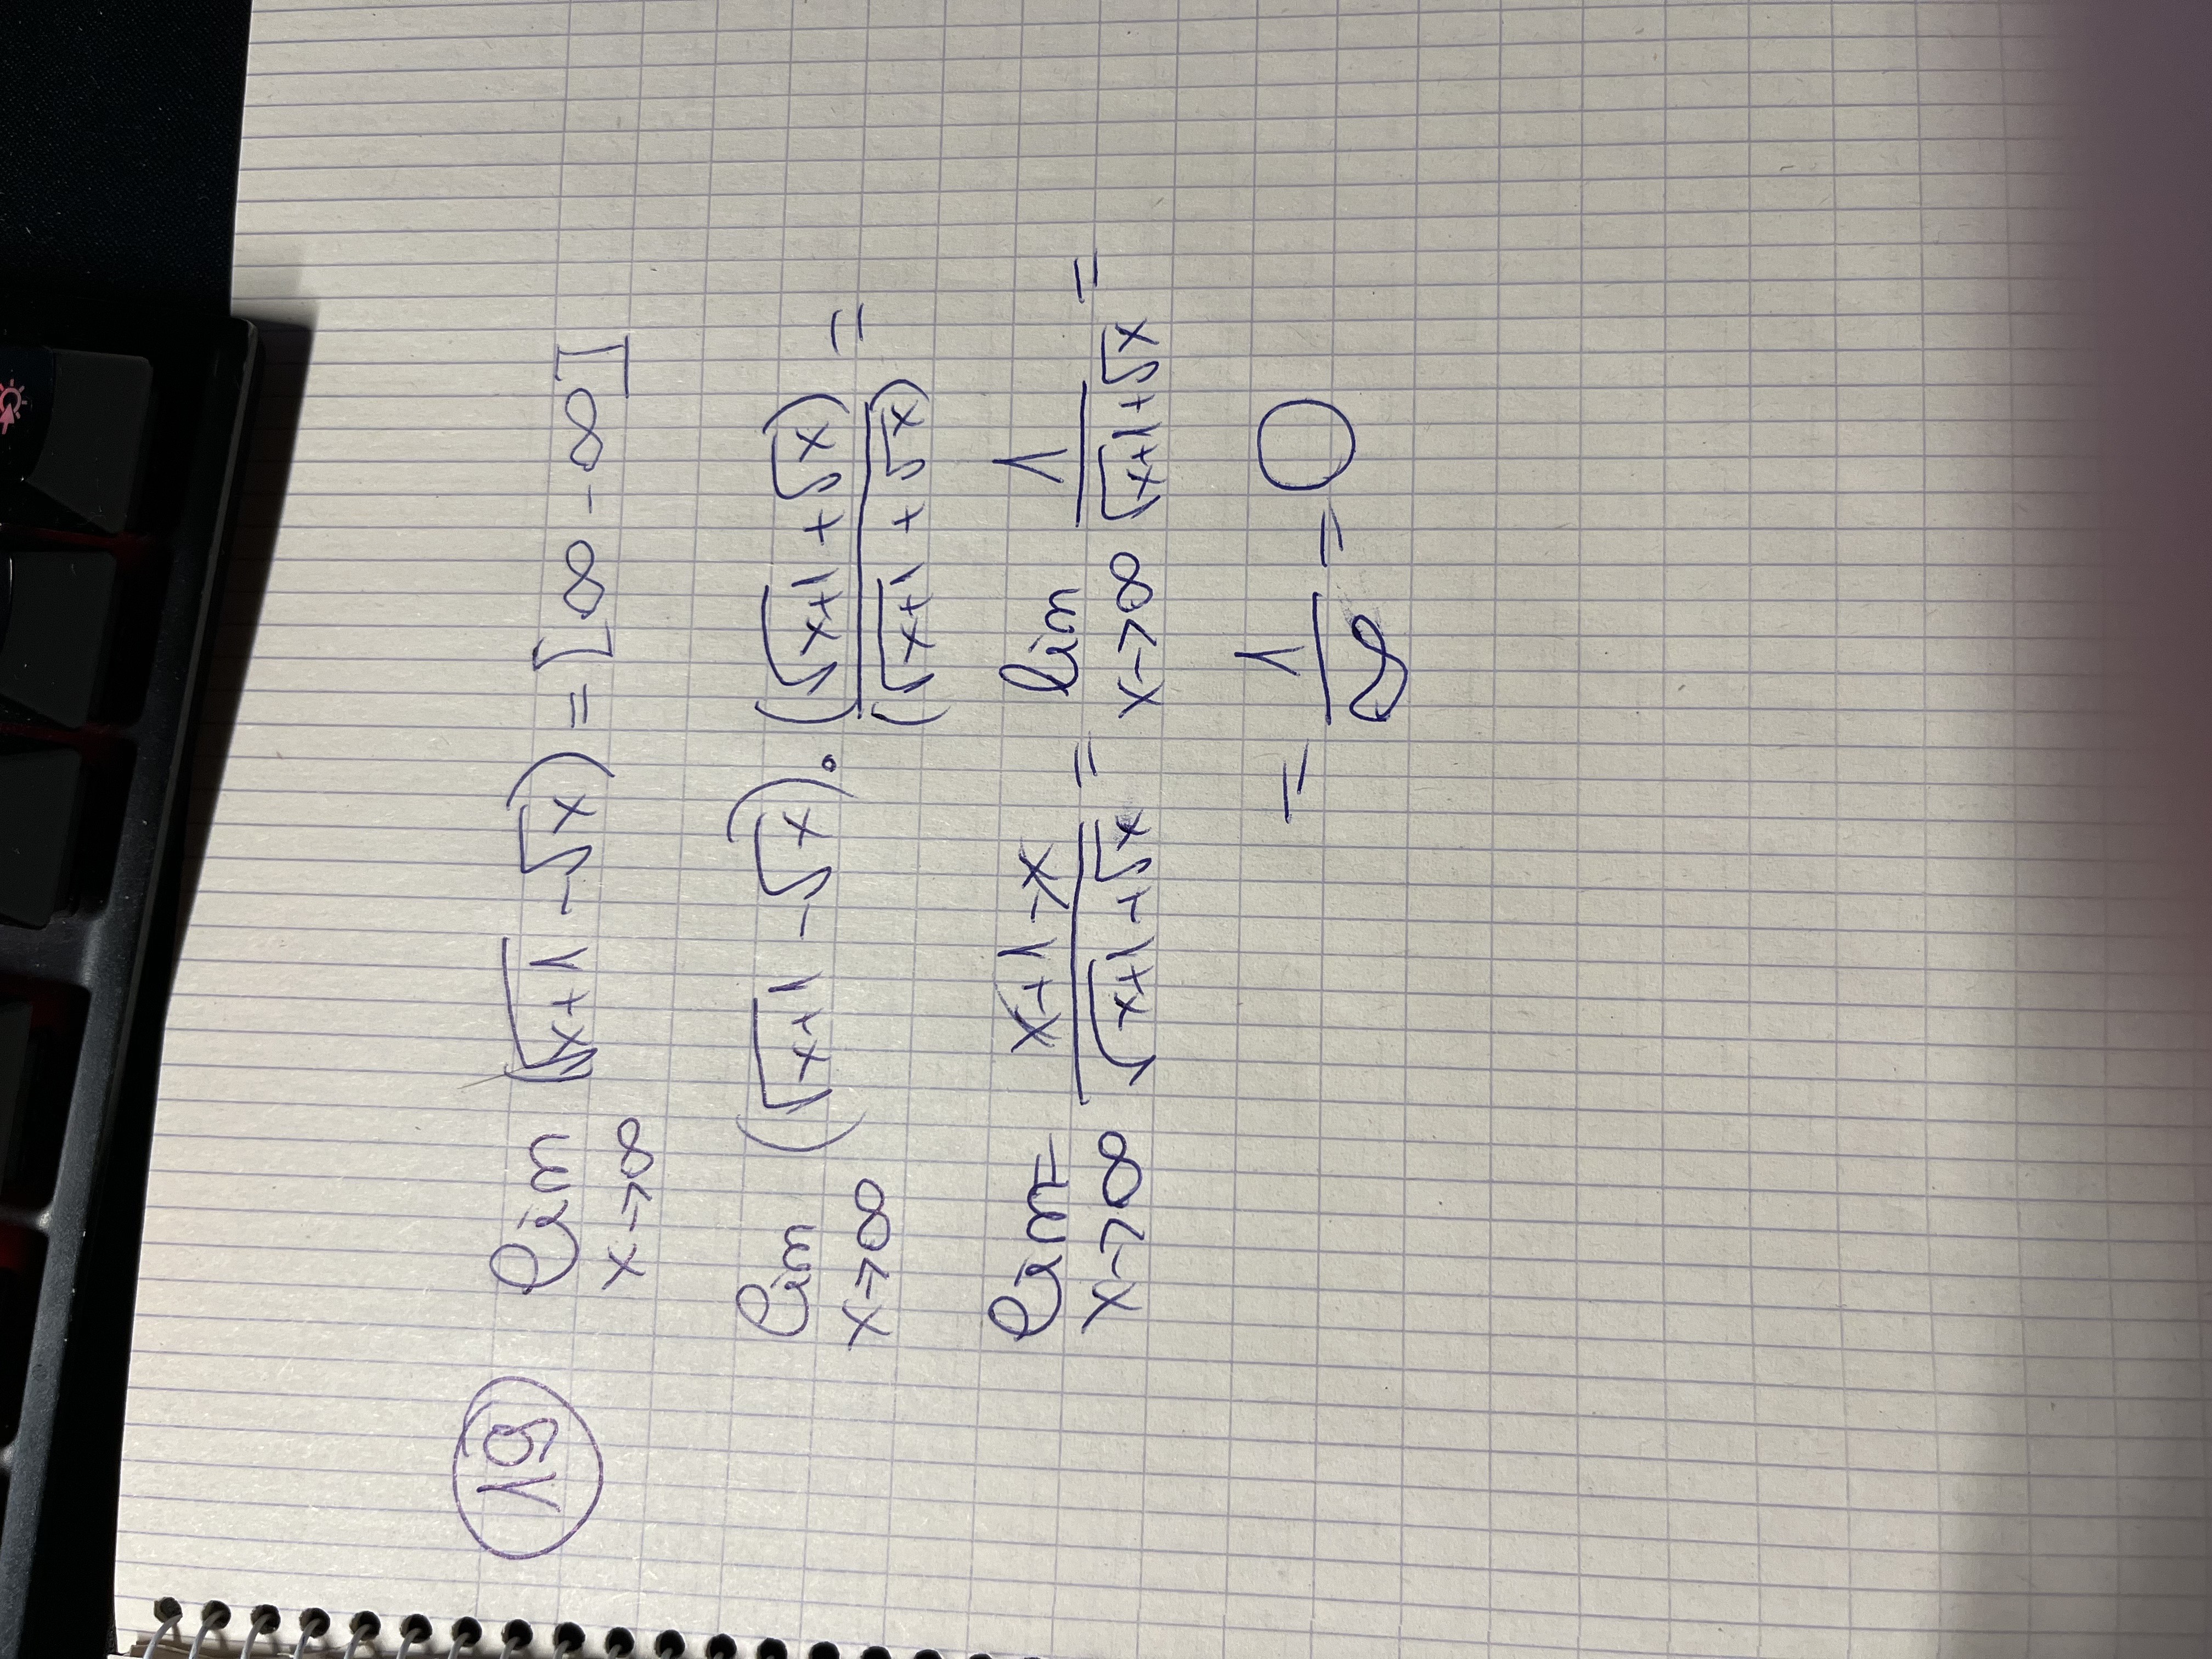 19 lim x→∞ (√x+1 - √x) = [∞ - ∞]
lim x→∞ (√x+1 - √x) · (√x+1 + √x) / (√x+1 + √x) =
lim= x→∞ x+1-x / √x+1 + √x = lim x→∞ 1 / √x+1 + √x =
= 1/∞ = 0